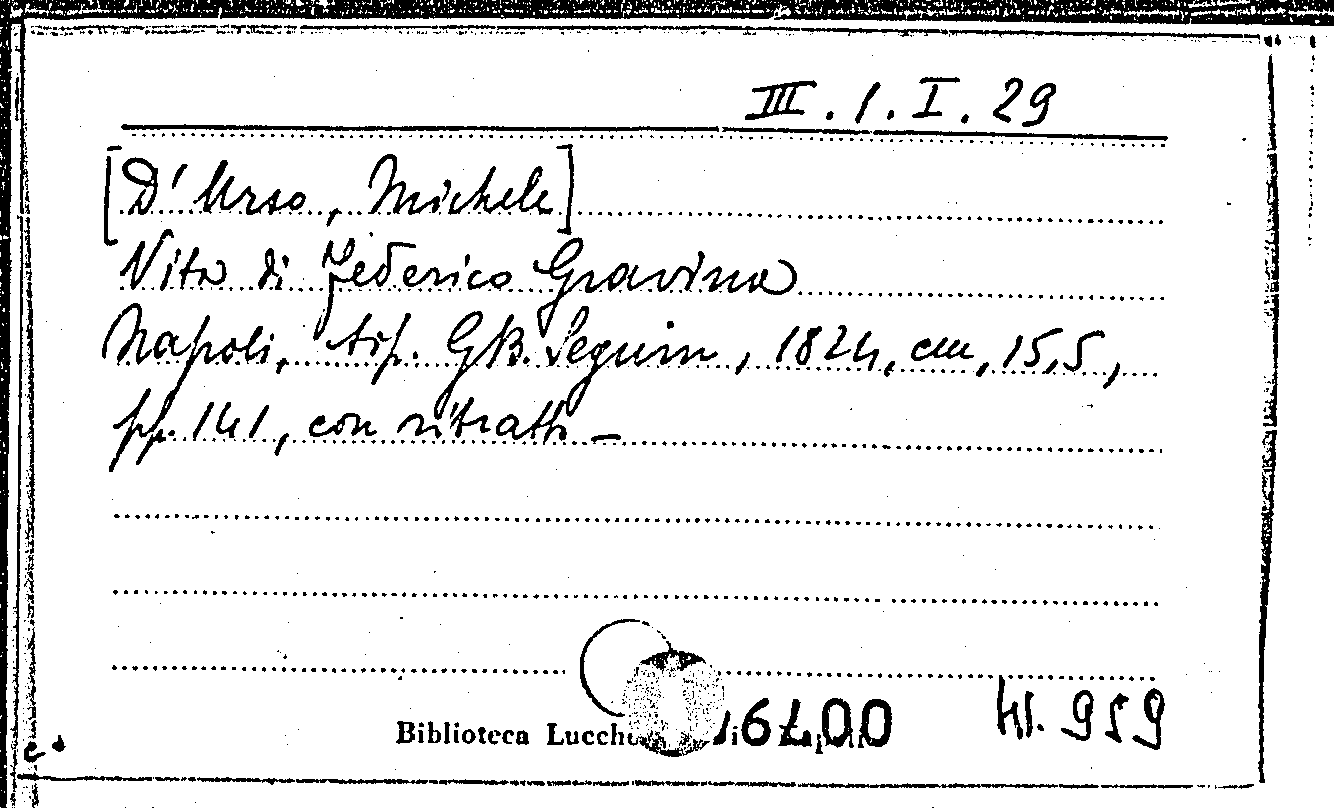 III.1.I.29
[D'Urso, Michele]
Vita di Federico Gravina
Napoli, tip. GB. Seguin, 1824, cm, 15,5,
pp. 141, con ritratti –
Biblioteca
959